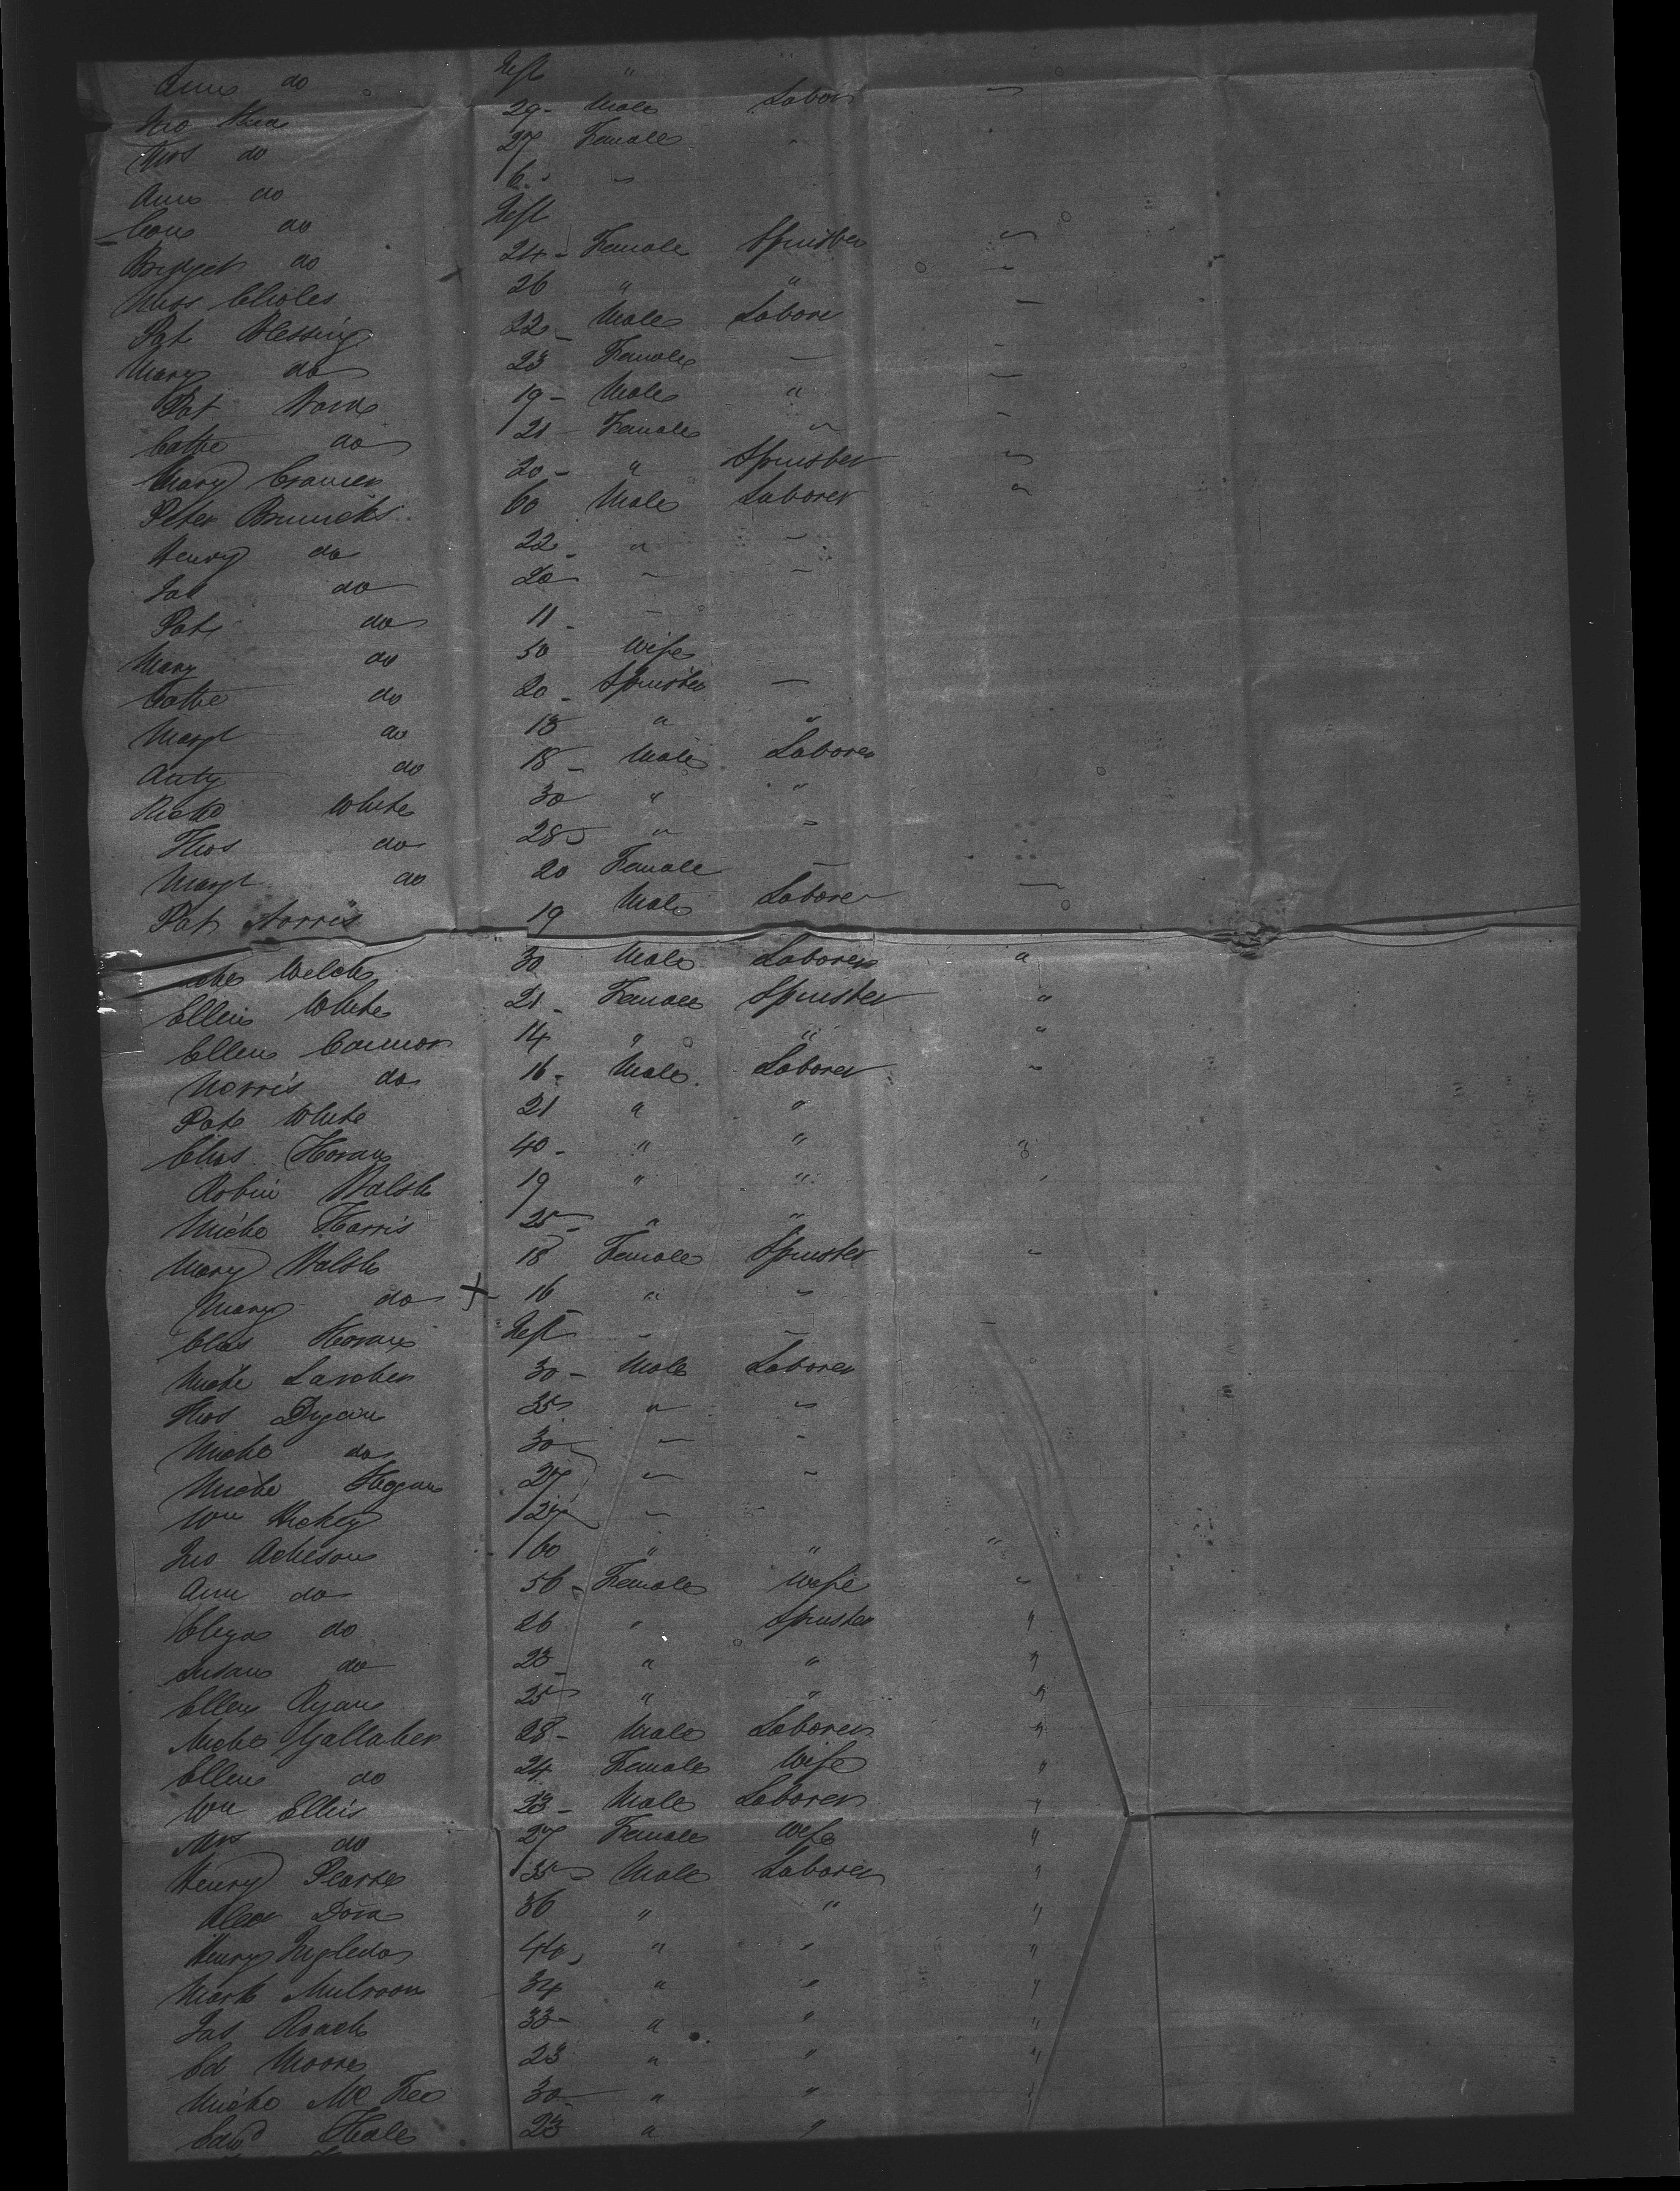 Ann do Inft " "
Jno 29 - Male Labor
Mrs do 27 Female "
Ann do 6 "
do Inft
Bridget do 24 - Female Spinster "
Miss 26 " " "
Pat Blessing 22 - Male Labore
Mary do 23 Female
Pat Ward 19 - Male "
Cathe do 21 - Female "
Mary 20 - " Spinster "
Peter 60 Male Laborer "
Henry do 22 - " "
Jas do 20 " "
Pat do 11 -
Mary do 50 Wife
Cathe do 20 - Spinster
Margt do 13 " "
Anty do 18 - Male Laborer
Richd White 30 " "
Thos do 28 " "
Margt do 20 Female
Pat Norris 19 Male Laborer
Welch 30 Male Laborer "
Ellen White 21 - Female Spinster "
Ellen Connor 14 " " "
Morris do 16 - Male Laborer "
Pat White 21 " "
Chas Horan 40 - " " "
Robin Walsh 19 " "
Miche Harris 25 - " "
Mary Walsh 18 Female Spinster "
Mary do X 16 " "
Chas Horan Inft
Miche Larcher 30 - Male Laborer
Thos 35 " "
Miche do 30 " "
Miche Hogan 27 " "
Wm Hickey 24 "
Jno Acheson 60 " " "
Ann do 56 - Female Wife "
Eliza do 26 " Spinster "
Susan do 23 - " " "
Ellen Ryan 25 " " "
Miche Gallaher 28 - Male Laborer "
Ellen do 24 Female Wife "
Wm Ellis 23 - Male Laborer "
Mrs do 27 Female Wife "
Henry Pearce 35 Male Laborer "
Alex 36 " " "
Henry 44 " " "
Mark Mulroon 34 " " "
Jas Roach 33 - " " "
Ed Moore 23 " " "
Miche Mc Fee 30 - " "
Edwd Hale 23 " "